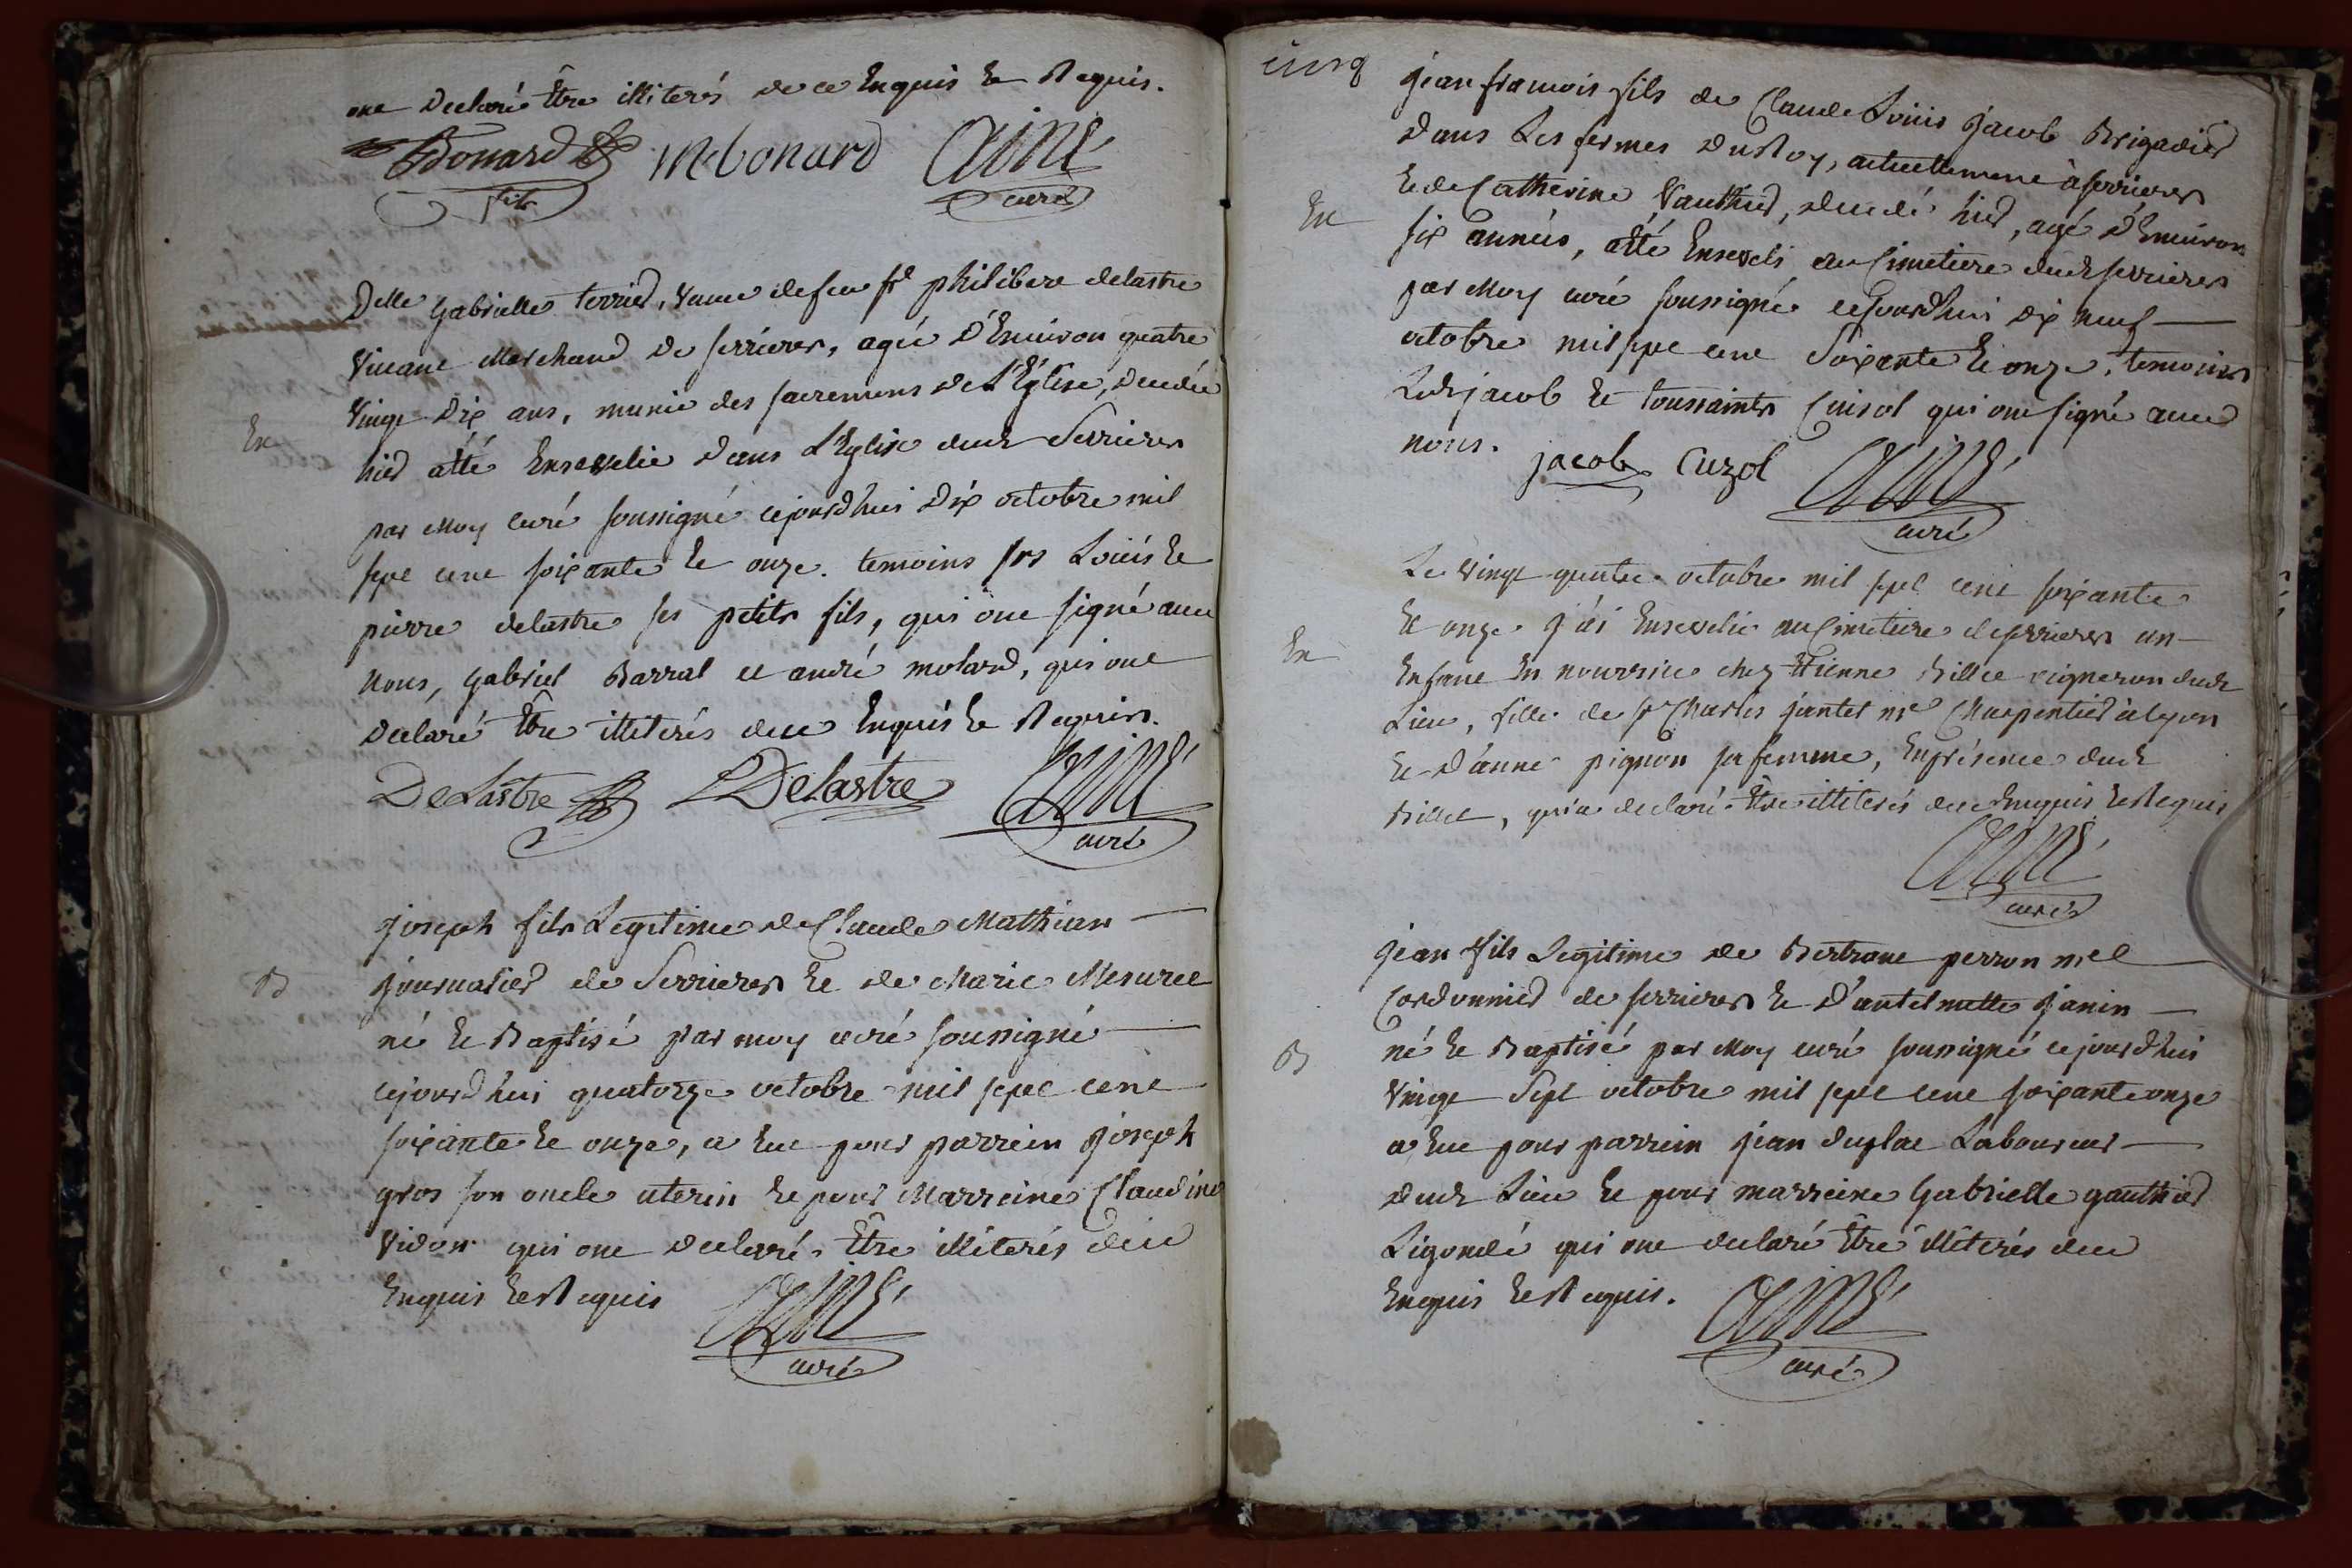 ont declaré Être illiterés de ce Enquis Et Requis.
Bonard fils M bonard AIMÉ curé
Delle Gabrielle terrier, veuve de feu sr philibert delastre
vivant Marchand de serrieres, agée d'Environ quatre
vingt dix ans, munie des sacremens de l'Église, decedée
En
hier a été Ensevelie dans L'Eglise dud Serrieres
par Moy curé soussigné cejourdhui dix octobre mil
sept cent soixante Et onze. temoins srs Louis Et
pierre delastre ses petits fils, qui ont signé avec
nous, gabriel Barral et andré molard, qui ont
declaré Être illiterés de ce Enquis Et Requis.
DeLastre LDelastre AIMÉ curé
joseph fils Legitime de Claude Mathian
B
journalier de Serrieres Et de Marie Mesuret
né Et Baptisé par moy curé soussigné
cejourdhui quatorze octobre mil sept cent
soixante Et onze, a Eut pour parrein joseph
gros son oncle uterin Et pour Marreine Claudine
vidon qui ont declaré Être illiterés de ce
Enquis Et Requis AIMÉ curé
cinq
jean francois fils de Claude Louis jacob Brigadier
dans Les fermes du Roy, actuellement à serrieres
Et de Catherine Vauthier, decedé hier, agé d'Environ
En
six années, a été Enseveli au Cimetiere dud serrieres
par Moy curé soussigné cejourdhui dix neuf
octobre mil sept cent Soixante Et onze, temoins
Led jacob Et toussaints Cuisol qui ont signé avec
nous. jacob Cuzol AIMÉ curé
Le vingt quatre octobre mil sept cent soixante
Et onze j'ai Ensevelie au Cimetiere de serrieres un
En
Enfant En nourrice chez Etienne Billet vigneron dud
Lieu, fille de sr Charles jantet me Charpentier à lyon
Et d'anne pignon sa femme, En présence dud
Billet, qui a declaré Être illiterés de ce Enquis Et Requis
AIMÉ curé
jean fils Legitime de Bertrant perron mel
Cordonnier de serrieres Et d'antelmette janin
B
né Et Baptisé par Moy curé soussigné cejourdhui
vingt Sept octobre mil sept cent soixante onze
a Eut pour parrein jean duplat Laboureur
dud Lieu Et pour marreine Gabrielle gauthier
Ligondé qui ont declaré Être illiterés de ce
Enquis Et Requis. AIMÉ curé